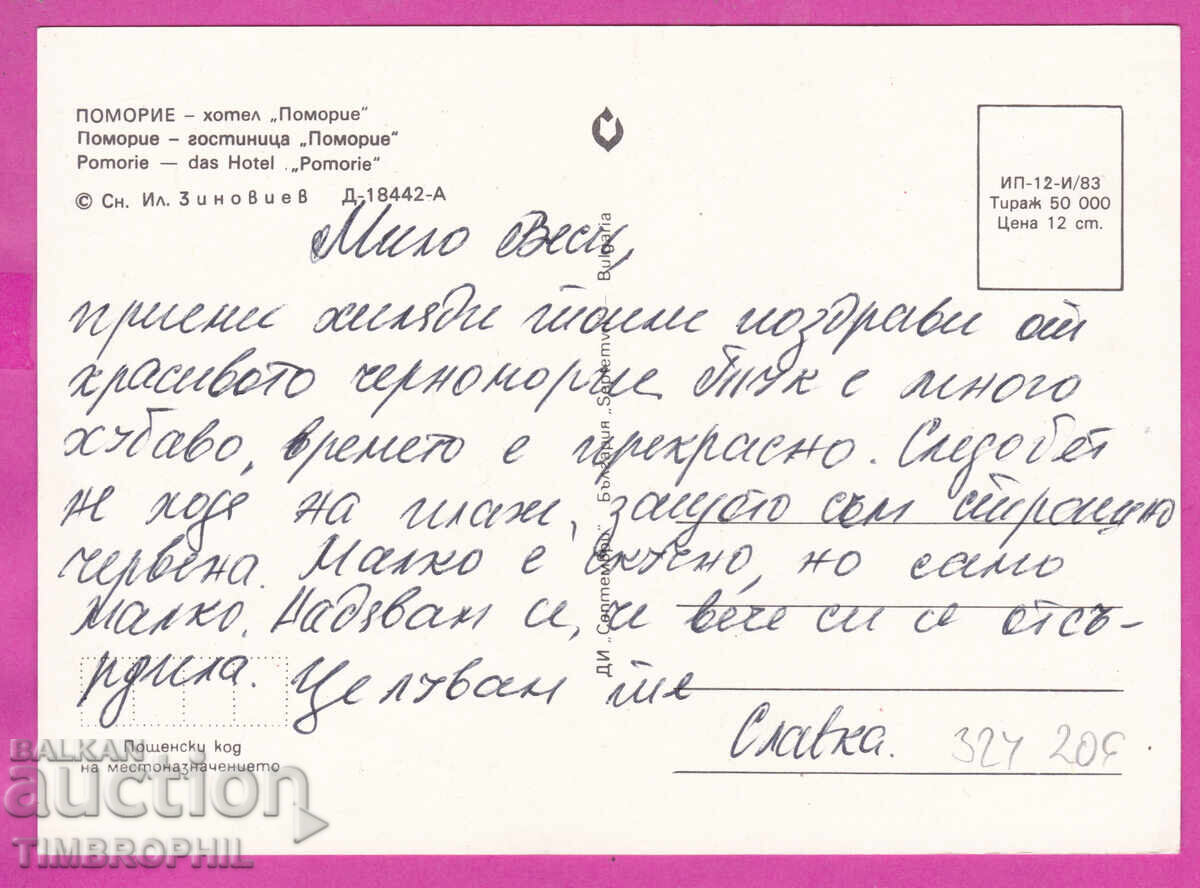 ПОМОРИЕ – хотел „Поморие"
Поморие – гостиница „Поморие"
Pomorie — das Hotel „Pomorie"
© Сн. Ил. Зиновиев Д-18442-А
ИП-12-И/83
Тираж 50 000
Цена 12 ст.
Мило Веси,
приеми хиляди топли поздрави от
красивото черноморие. Тук е много
хубаво, времето е прекрасно. Следобет
не ходя на плаж, защото съм страшно
червена. Малко е скучно, но само
малко. Надявам се, че вече си се отсъ-
рдила. Целувам те
Славка.
324 205
ДИ „Септември" България „Septemvri" — Bulgaria
Пощенски код
на местоназначението
BALKAN
auction
TIMBROPHIL